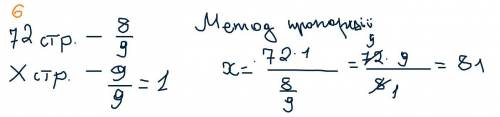 6
72 стр. – 8/9
X стр. – 9/9 = 1
Метод пропорций
x = 72·1 / (8/9) = 72·9 / 8 = 81
9
1